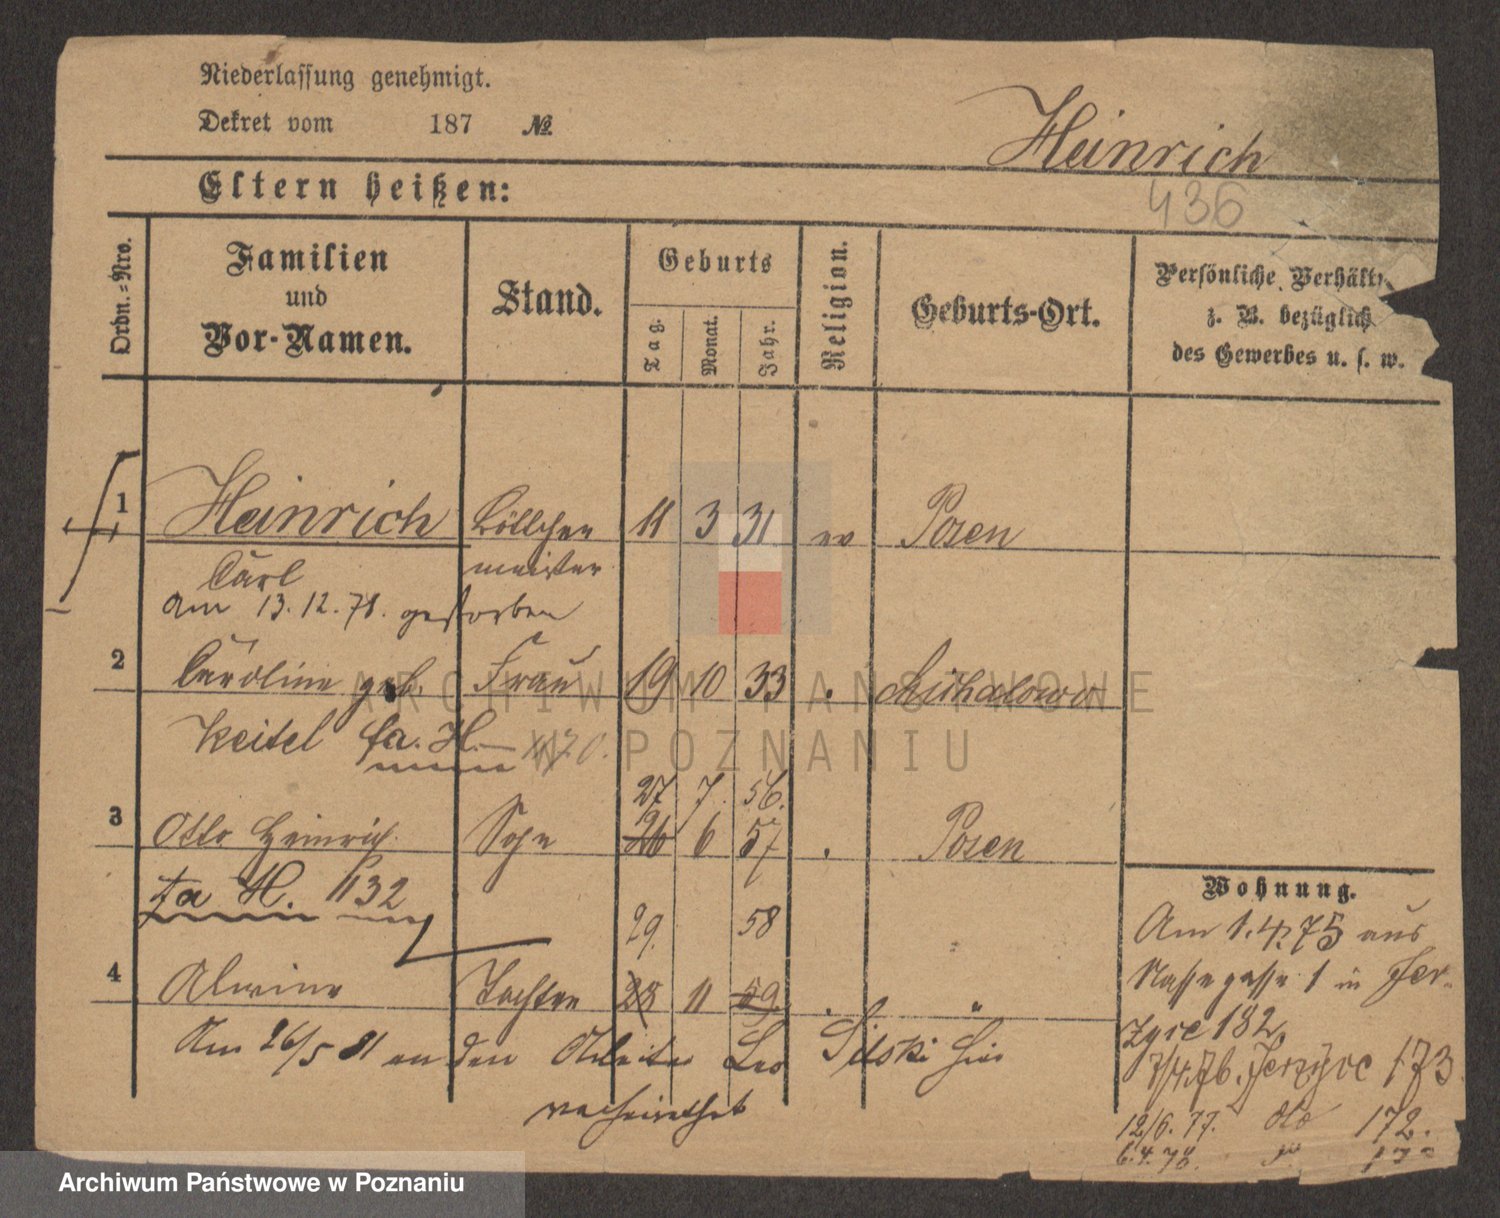 Niederlassung genehmigt.
Dekret vom 187 №
Heinrich
Eltern heißen:
436
Ordn.-Nro.
Familien
und
Vor-Namen.
Stand.
Geburts
Tag.
Monat.
Jahr.
Religion.
Geburts-Ort.
Persönliche Verhält
z. B. bezüglich
des Gewerbes u. s. w.
1 Heinrich Böttcher 11 3 31 ev Posen
Carl meister
am 13.12.78. gestorben
2 Caroline geb. Frau 19 10 33 . Michalowo
Keitel fa. H.
27 7 56.
3 Otto Heinrich Sohn 26 6 57 . Posen
fa H. 1132
29. 58
4 Alwine Tochter 28 11 59 . "
Am 26/5 81 an den Arbeiter Leo Silski hier
verheirathet
Wohnung.
Am 1.4.75 aus
Nassegasse 1 in Jer-
zyce 182
7/4.76. Jerzyce 173
12/6.77. dto 172.
6.4.78.
ARCHIWUM PAŃSTWOWE
W POZNANIU
Archiwum Państwowe w Poznaniu